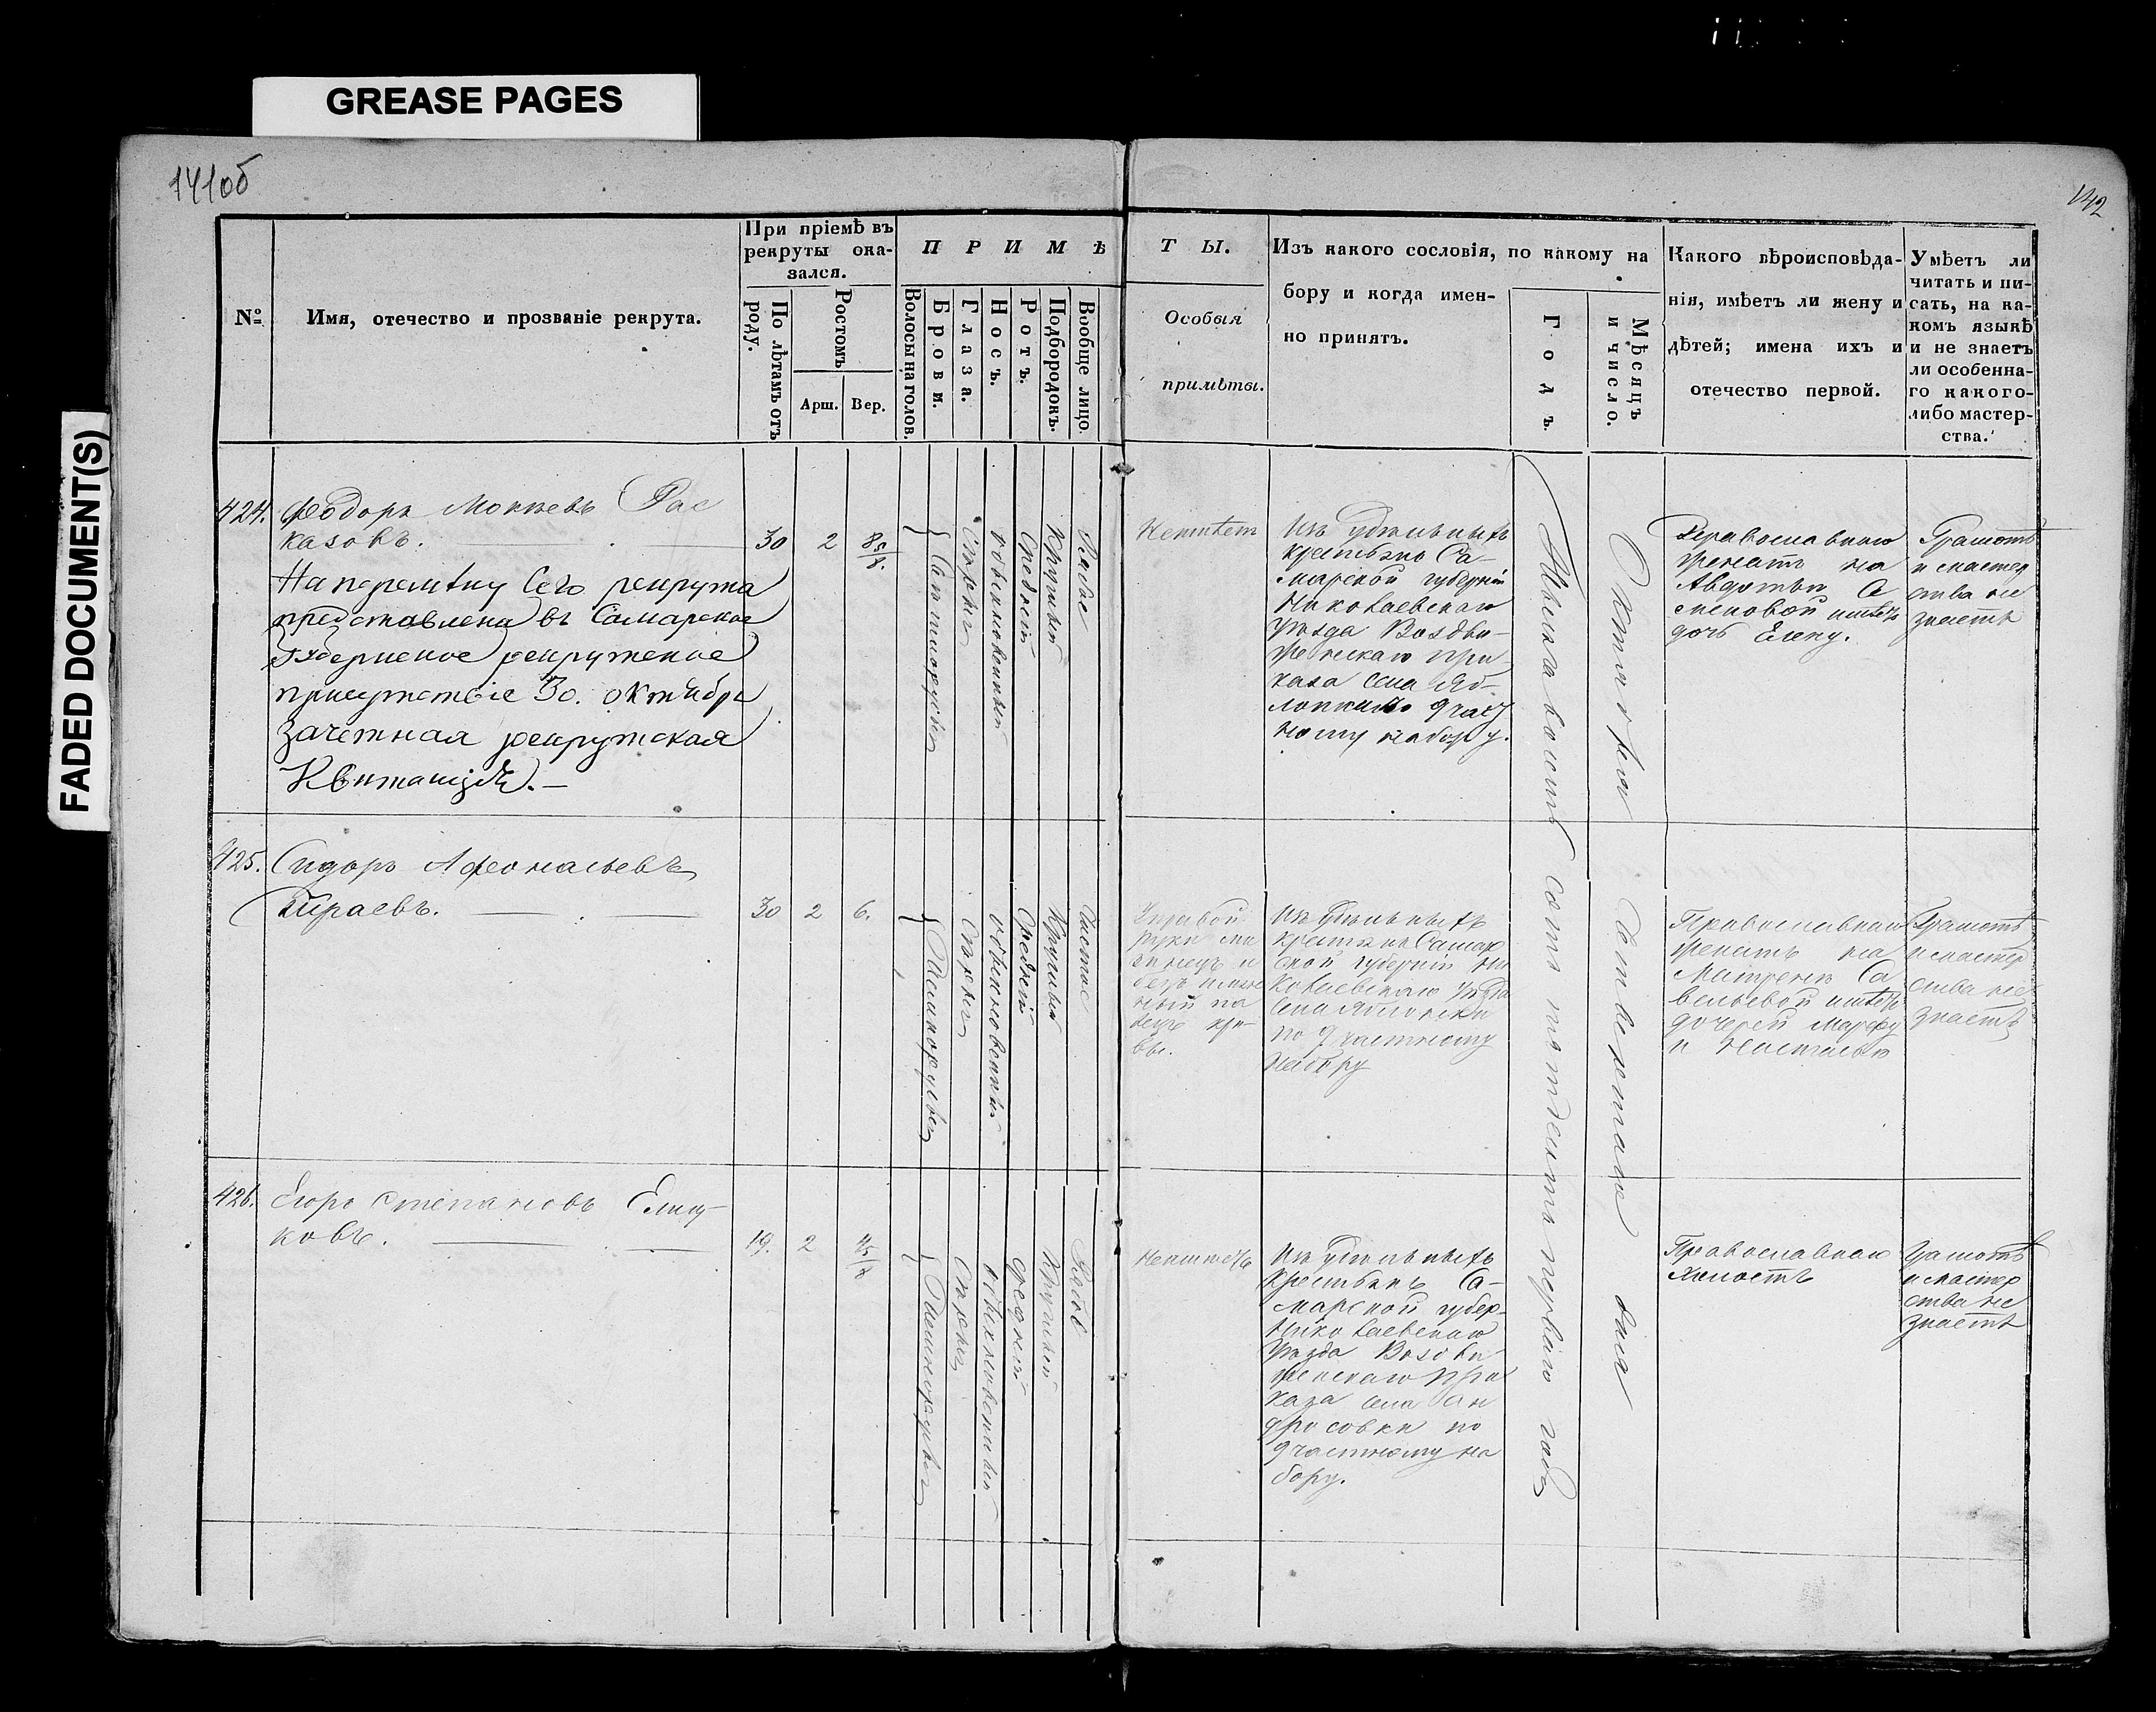 GREASE PAGES
FADED DOCUMENT(S)
141об
142
№
Имя, отечество и прозваніе рекрута.
При пріемѣ въ
рекруты ока-
зался.
По лѣтамъ отъ
роду.
Ростомъ
Арш.
Вер.
ПРИМѢ
Волосы на голов.
Брови.
Глаза.
Носъ.
Ротъ.
Подбородокъ.
Вообще лицо.
ТЫ.
Особыя
примѣты.
Изъ какого сословія, по какому на
бору и когда имен-
но принятъ.
Годъ.
Мѣсяцъ
и число.
Какого вѣроисповѣда-
нія, имѣетъ ли жену и
дѣтей; имена ихъ и
отечество первой.
Умѣетъ ли
читать и пи-
сать, на ка-
комъ языкѣ
и не знаетъ
ли особенна-
го какого-
либо мастер-
ства.
424.
Федоръ Мокѣевъ Рас
казовъ.
На перемѣну Сего рекрута
представлена въ Самарское
Губернское рекрутское
присутствіе 30. октября
зачетная рекрутская
Квитанція.
30
2
8 5/8.
Свѣтлорусые
Сѣрые
обыкновенный
Средній
Круглый
Рябое
Неимѣет
Изъ удѣльныхъ
крестьянъ Са-
марской губерніи
Николаевскаго
уѣзда Воздви-
женскаго при
каза села Яб-
лонки по 9 част
ному набору.
Тысяча восемь сотъ пятдесятъ перваго года
Октября
Четвертаго дня
Православнаго
женатъ на
Авдотьи Се
меновой имѣетъ
дочь Елену.
Грамотѣ
и мастер
ства не
знаетъ
425.
Сидоръ Афонасьевъ
Кираевъ.
30
2
6.
Темнорусые
Сѣрые
обыкновенный
Средній
Круглый
Чистое
У правой
руки ми
зинецъ и
безъимян
ный па
лецъ кри-
вы.
Изъ удѣльныхъ
крестьянъ Самар
ской губерніи Ни
колаевскаго уѣзда
Села Яблонки
по 9 частному
Набору
Православнаго
женатъ на
Матренѣ Са
вельевой имѣетъ
дочерей Марфу
и Настасью
Грамотѣ
и мастер
ства не
знаетъ
426.
Егоръ Степановъ
ковъ.
19.
2
4 5/8
Темнорусые
Сѣрые
обыкновенный
Средній
Круглый
Рябое
Неимѣетъ
Изъ удѣльныхъ
крестьянъ Са-
марской губер-
Николаевскаго
уѣзда Воздви-
женскаго При
каза села Ан
дросовки по
9 частному на
бору.
Православнаго
Холостъ
Грамотѣ
и мастер
ства не
знаетъ